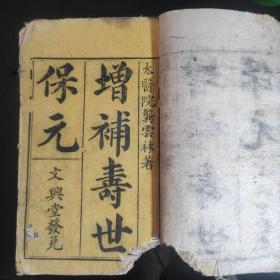 太醫院龔雲林著
增補壽世
保元
文興堂發兌